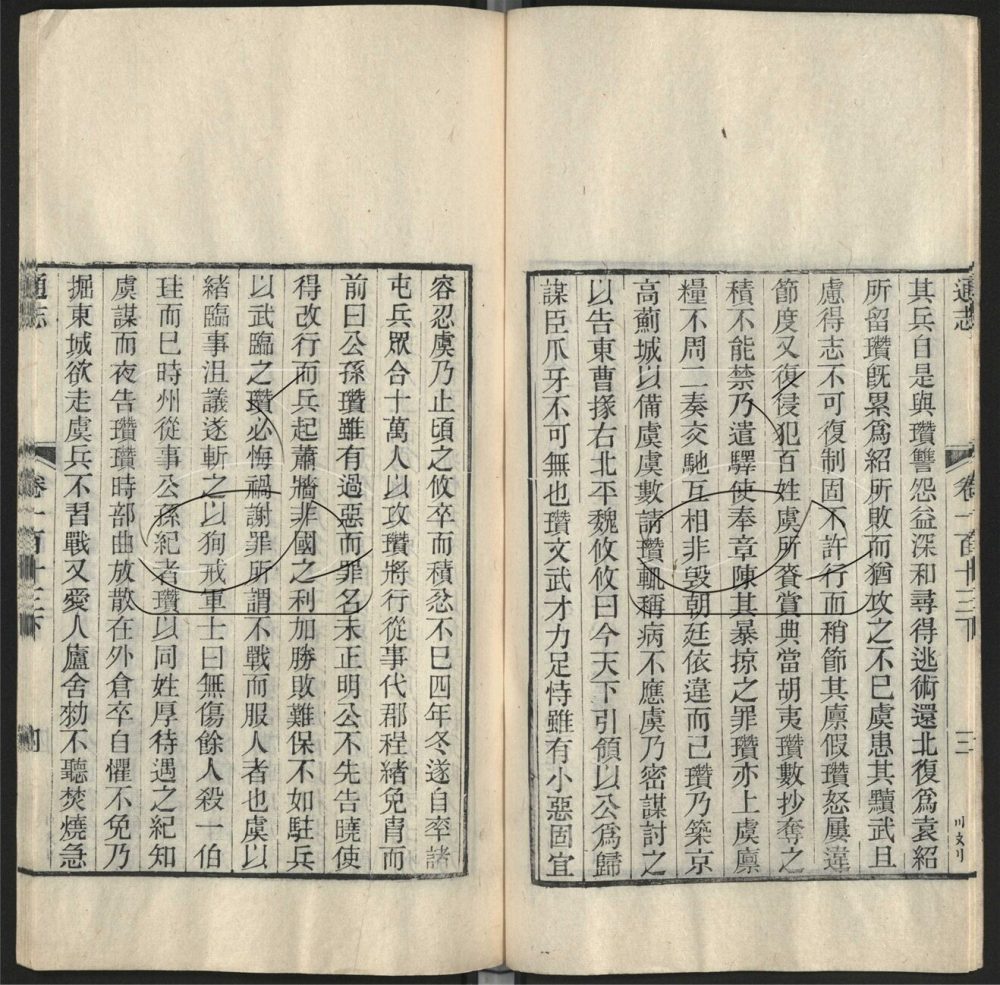 其兵自是與瓚讐怨益深和尋得逃術還北復爲袁紹
所留瓚旣累爲紹所敗而猶攻之不已虞患其黷武且
慮得志不可復制固不許行而稍節其廩假瓚怒屢違
節度又復侵犯百姓虞所賚賞典當胡夷瓚數抄奪之
積不能禁乃遣驛使奉章陳其暴掠之罪瓚亦上虞廩
糧不周二奏交馳互相非毀朝廷依違而已瓚乃築京
高薊城以備虞虞數請瓚輒稱病不應虞乃密謀討之
以告東曹掾右北平魏攸攸曰今天下引領以公爲歸
謀臣爪牙不可無也瓚文武才力足恃雖有小惡固宜
容忍虞乃止頃之攸卒而積忿不已四年冬遂自率諸
屯兵眾合十萬人以攻瓚將行從事代郡程緒免胄而
前曰公孫瓚雖有過惡而罪名未正明公不先告曉使
得改行而兵起蕭牆非國之利加勝敗難保不如駐兵
以武臨之瓚必悔禍謝罪所謂不戰而服人者也虞以
緒臨事沮議遂斬之以狥戒軍士曰無傷餘人殺一伯
珪而已時州從事公孫紀者瓚以同姓厚待遇之紀知
虞謀而夜告瓚瓚時部曲放散在外倉卒自懼不免乃
掘東城欲走虞兵不習戰又愛人廬舍勑不聽焚燒急
通志
卷一百十三下